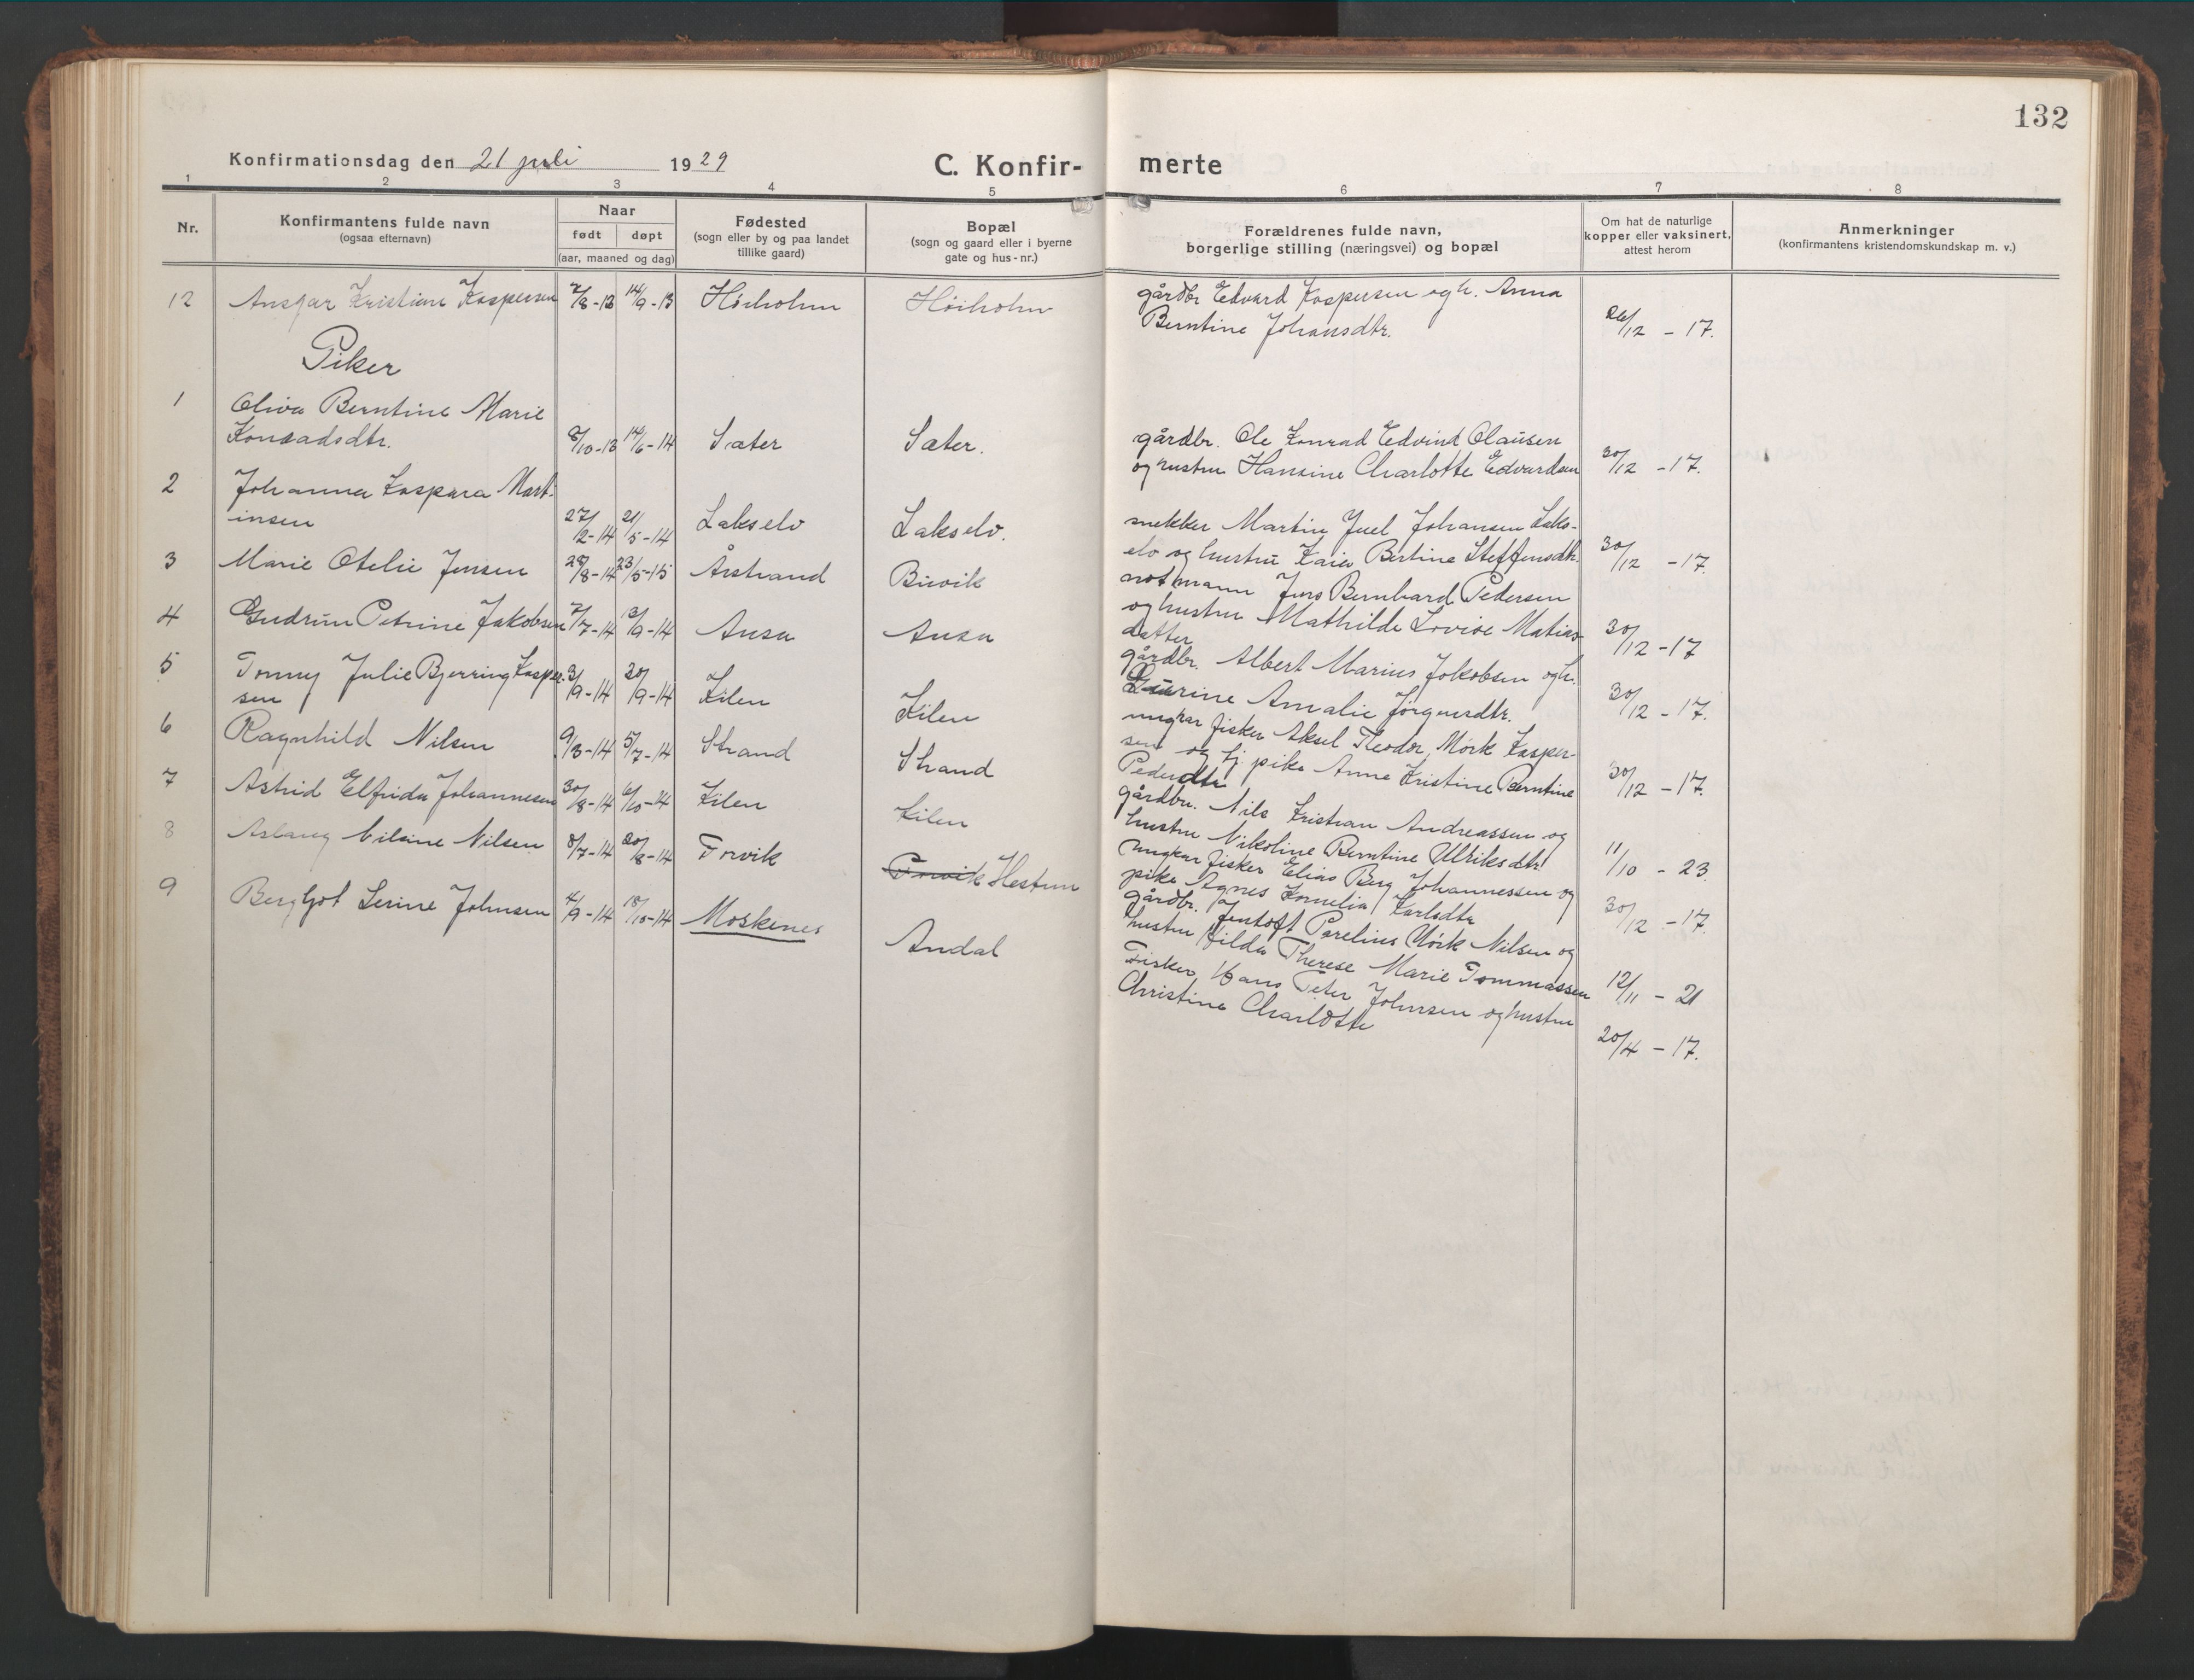 132
Konfirmationsdag den 21 juli 1929
C. Konfir-
merte
1 2 3 4 5 6 7 8
Nr.
Konfirmantens fulde navn
(ogsaa efternavn)
Naar
født døpt
(aar, maaned og dag)
Fødested
(sogn eller by og paa landet
tillike gaard)
Bopæl
(sogn og gaard eller i byerne
gate og hus-nr.)
Forældrenes fulde navn,
borgerlige stilling (næringsvei) og bopæl
Om hat de naturlige
kopper eller vaksinert,
attest herom
Anmerkninger
(konfirmantens kristendomskundskap m. v.)
12 Ansgar Kristian Kaspersen 7/8-13 14/9-13 Høiholm Høiholm
gårdbr Edvard Kaspersen og h. Anna
Berntine Johansdtr. 26/12 - 17.
Piker
1 Oliva Berntine Marie
Konradsdtr. 8/10-13 14/6-14 Sæter Sæter.
gårdbr. Ole Konrad Edvind Olausen
og hustru Hansine Charlotte Edvardsen 30/12 - 17.
2 Johanna Kaspara Mart-
insen 27/2-14 21/5-14 Lakselv Lakselv.
snekker Martin Juel Johansen Laks-
elv og hustru Kaia Bertine Steffensdtr. 30/12 - 17.
3 Marie Otelie Jensen 28/8-14 23/5-15 Årstrand Buvik
notmann Jens Bernhard Pedersen
og hustru Mathilde Lovise Matias-
datter 30/12 - 17
4 Gudrun Petrine Jakobsen 7/7-14 13/9-14 Ausa Ausa
gårdbr. Albert Marius Jakobsen og h.
Laurine Amalie Jørgensdtr. 30/12 - 17.
5 Tonny Julie Bjerring Kasper-
sen 3/9-14 20/9-14 Kilen Kilen
ungkar fisker Aksel Teodor Mørk Kasper-
sen og tj. pike Anne Kristine Berntine
Pedersdtr 30/12 - 17.
6 Ragnhild Nilsen 9/3-14 5/7-14 Strand Strand
gårdbr. Nils Kristian Andreassen og
hustru Nikoline Berntine Ulriksdtr 11/10 - 23.
7 Astrid Elfrida Johannesen 30/8-14 6/10-14 Kilen Kilen
ungkar fisker Elias Berg Johannessen og
pike Agnes Kornelia Karlsdtr 30/12 - 17.
8 Aslaug Vilsine Nilsen 8/7-14 20/8-14 Torvik Torvik Hestun
gårdbr. Jentoft Parelius Mørk Nilsen og
hustru Hilda Therese Marie Tommassen 12/11 - 21
9 Bergljot Serine Johnsen 4/9-14 18/10-14 Moskenes Andal
Fisker Hans Peter Johnsen og hustru
Christine Charlotte 20/4 - 17.